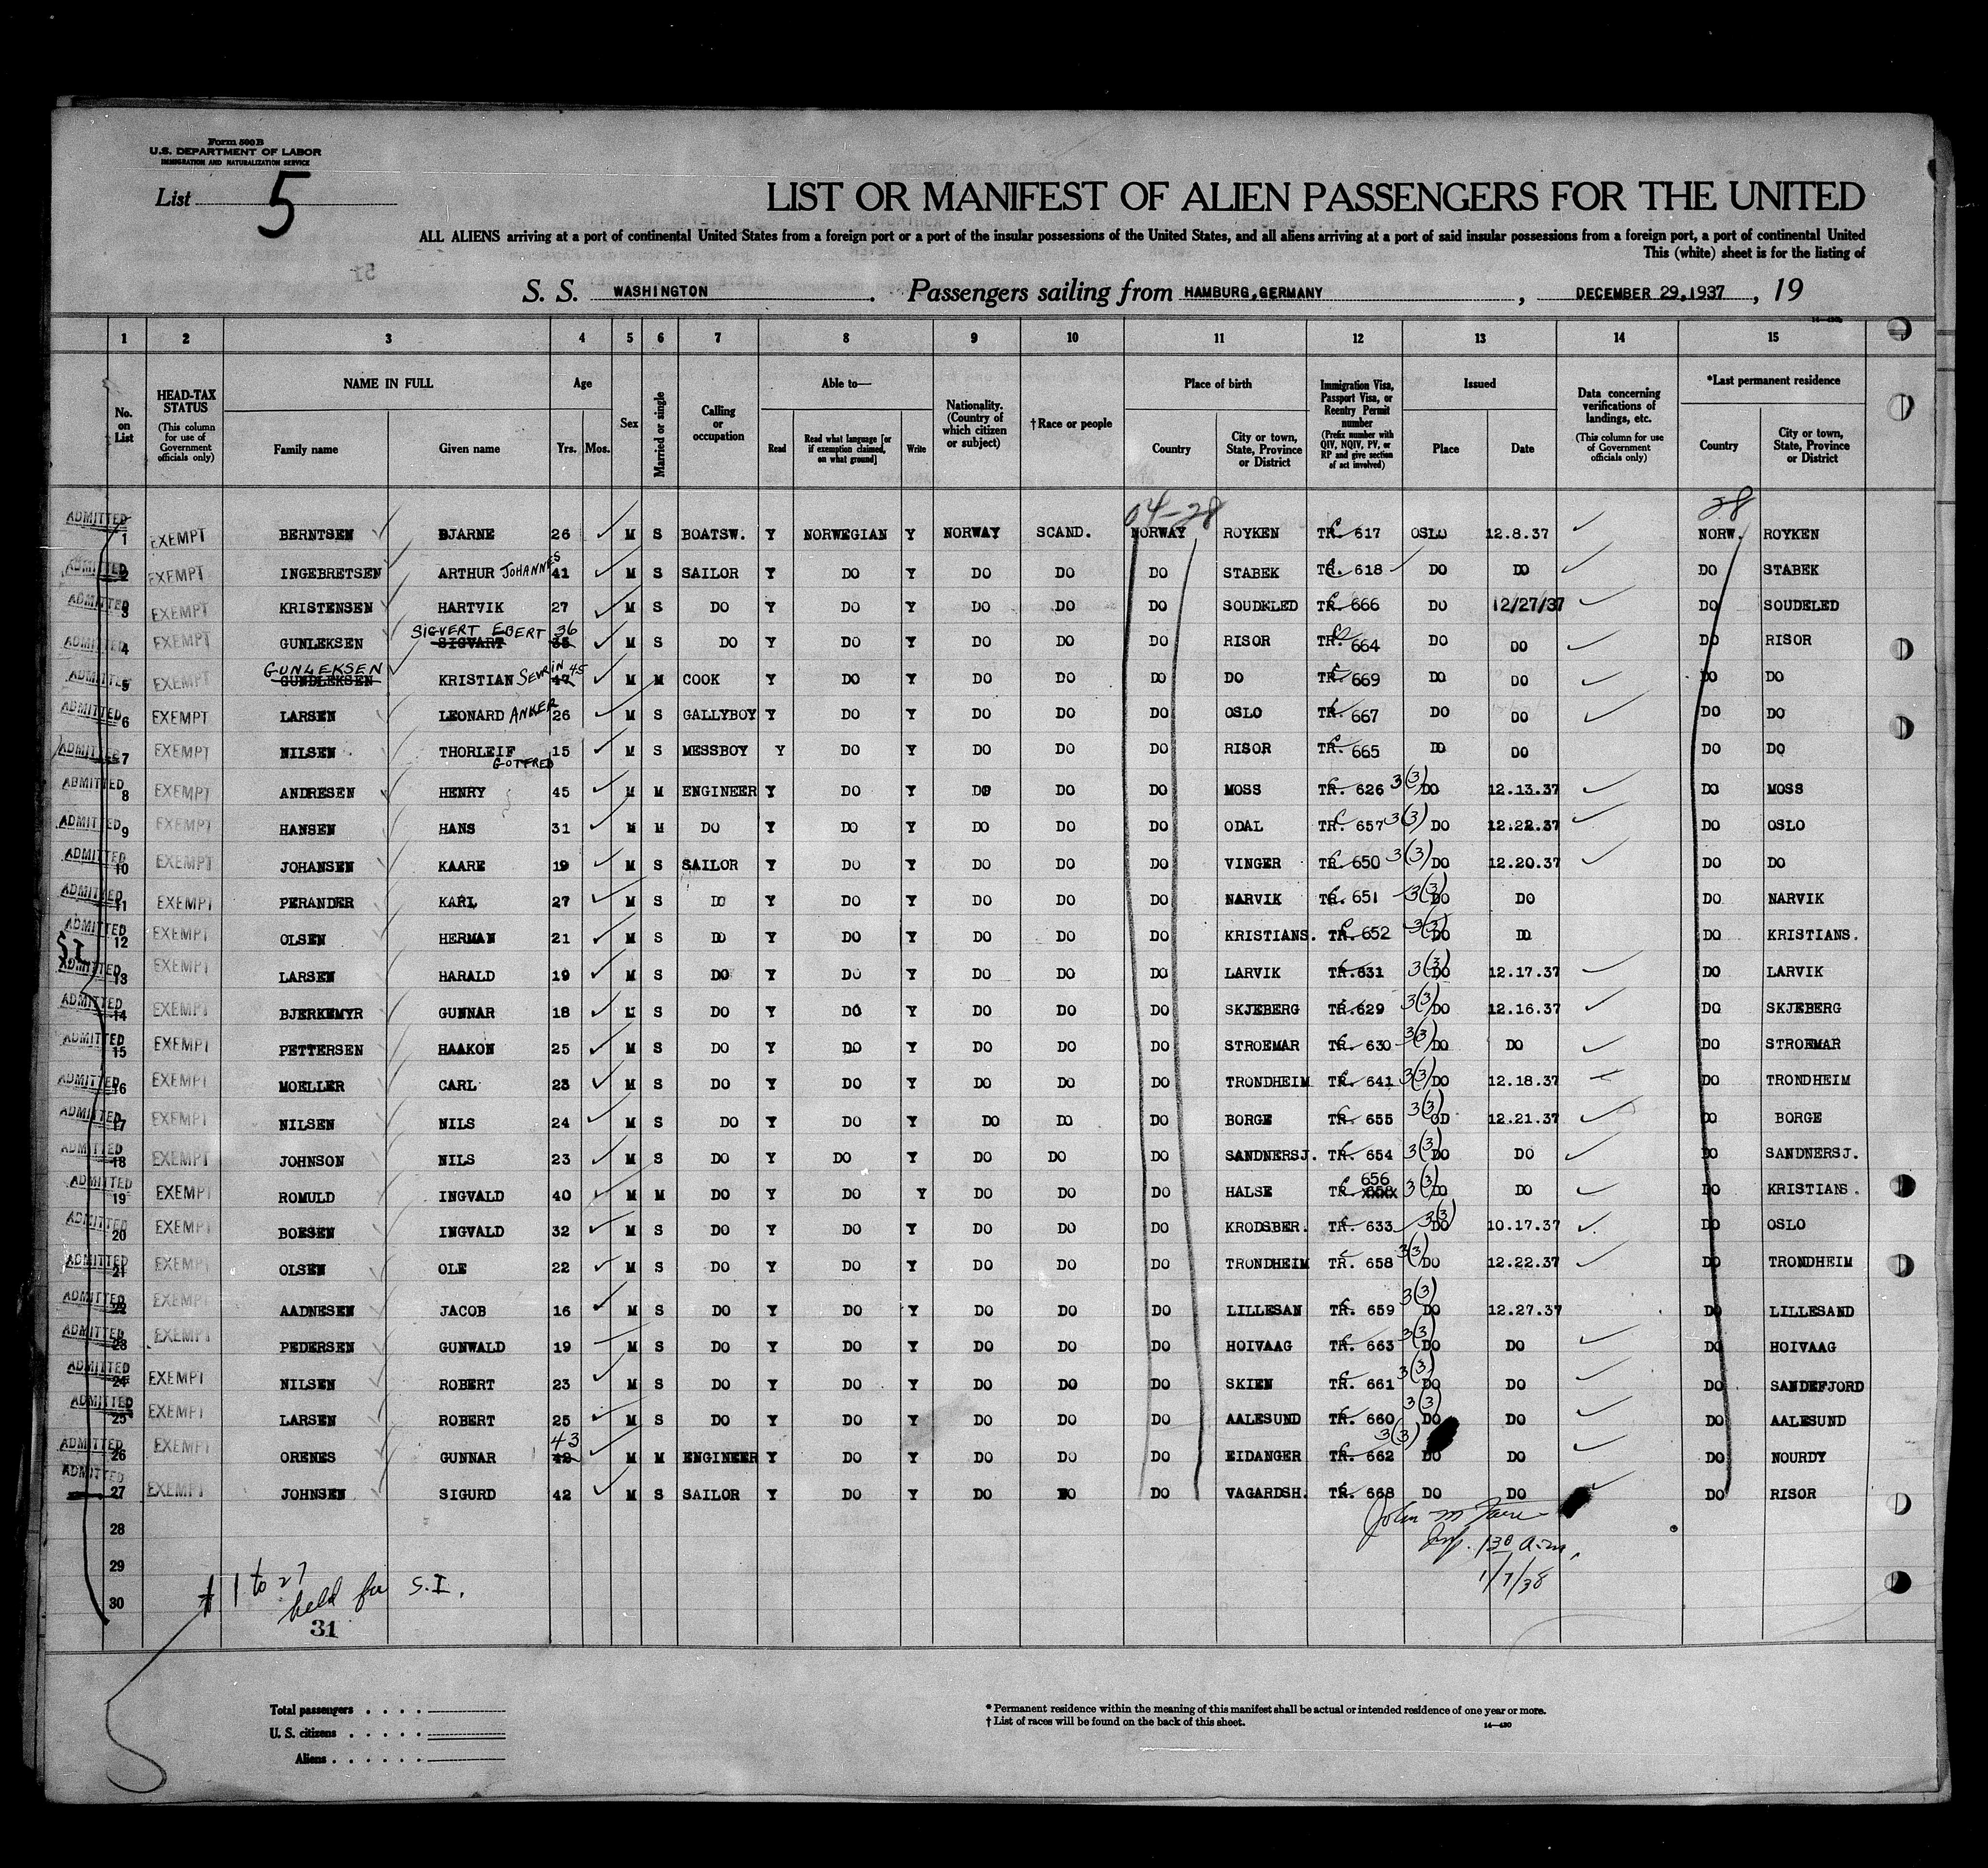 Form 500 B
U.S. DEPARTMENT OF LABOR
IMMIGRATION AND NATURALIZATION SERVICE
List 5
LIST OR MANIFEST OF ALIEN PASSENGERS FOR THE UNITED
ALL ALIENS arriving at a port of continental United States from a foreign port or a port of the insular possessions of the United States, and all aliens arriving at a port of said insular possessions from a foreign port, a port of continental United
This (white) sheet is for the listing of
S. S. WASHINGTON. Passengers sailing from HAMBURG, GERMANY, DECEMBER 29, 1937, 19
1 2 3 4 5 6 7 8 9 10 11 12 13 14 15
No. on List
HEAD-TAX STATUS (This column for use of Government officials only)
NAME IN FULL Family name Given name
Age Yrs. Mos.
Sex
Married or single
Calling or occupation
Able to— Read Read what language [or if exemption claimed, on what ground] Write
Nationality. (Country of which citizen or subject)
†Race or people
Place of birth Country City or town, State, Province or District
Immigration Visa, Passport Visa, or Reentry Permit number (Prefix number with QIV, NQIV, PV, or RP and give section of act involved)
Issued Place Date
Data concerning verifications of landings, etc. (This column for use of Government officials only)
*Last permanent residence Country City or town, State, Province or District
04-28 28
ADMITTED 1 EXEMPT BERNTSEN BJARNE 26 M S BOATSW. Y NORWEGIAN Y NORWAY SCAND. NORWAY ROYKEN TR. 617 OSLO 12.8.37 NORW. ROYKEN
ADMITTED 2 EXEMPT INGEBRETSEN ARTHUR JOHANNES 41 M S SAILOR Y DO Y DO DO DO STABEK TR. 618 DO DO DO STABEK
ADMITTED 3 EXEMPT KRISTENSEN HARTVIK 27 M S DO Y DO Y DO DO DO SOUDELED TR. 666 DO 12/27/37 DO SOUDELED
ADMITTED 4 EXEMPT GUNLEKSEN SIGVART SIGVERT EBERT 35 36 M S DO Y DO Y DO DO DO RISOR TR. 664 DO DO DO RISOR
ADMITTED 5 EXEMPT GUNDLEKSEN GUNLEKSEN KRISTIAN SEVRIN 47 45 M M COOK Y DO Y DO DO DO DO TR. 669 DO DO DO DO
ADMITTED 6 EXEMPT LARSEN LEONARD ANKER 26 M S GALLYBOY Y DO Y DO DO DO OSLO TR. 667 DO DO DO DO
ADMITTED 7 EXEMPT NILSEN THORLEIF GOTFRED 15 M S MESSBOY Y DO Y DO DO DO RISOR TR. 665 DO DO DO DO
ADMITTED 8 EXEMPT ANDRESEN HENRY 45 M M ENGINEER Y DO Y DO DO DO MOSS TR. 626 3(3) DO 12.13.37 DO MOSS
ADMITTED 9 EXEMPT HANSEN HANS 31 M M DO Y DO Y DO DO DO ODAL TR. 657 3(3) DO 12.22.37 DO OSLO
ADMITTED 10 EXEMPT JOHANSEN KAARE 19 M S SAILOR Y DO Y DO DO DO VINGER TR. 650 3(3) DO 12.20.37 DO DO
ADMITTED 11 EXEMPT PERANDER KARL 27 M S DO Y DO Y DO DO DO NARVIK TR. 651 3(3) DO DO DO NARVIK
ADMITTED 12 EXEMPT OLSEN HERMAN 21 M S DO Y DO Y DO DO DO KRISTIANS. TR. 652 3(3) DO DO DO KRISTIANS.
S.I.
ADMITTED 13 EXEMPT LARSEN HARALD 19 M S DO Y DO Y DO DO DO LARVIK TR. 631 3(3) DO 12.17.37 DO LARVIK
ADMITTED 14 EXEMPT BJERKEMYR GUNNAR 18 M S DO Y DO Y DO DO DO SKJEBERG TR. 629 3(3) DO 12.16.37 DO SKJEBERG
ADMITTED 15 EXEMPT PETTERSEN HAAKON 25 M S DO Y DO Y DO DO DO STROEMAR TR. 630 3(3) DO DO DO STROEMAR
ADMITTED 16 EXEMPT MOELLER CARL 23 M S DO Y DO Y DO DO DO TRONDHEIM TR. 641 3(3) DO 12.18.37 DO TRONDHEIM
ADMITTED 17 EXEMPT NILSEN NILS 24 M S DO Y DO Y DO DO DO BORGE TR. 655 3(3) OD 12.21.37 DO BORGE
ADMITTED 18 EXEMPT JOHNSON NILS 23 M S DO Y DO Y DO DO DO SANDNERSJ. TR. 654 3(3) DO DO DO SANDNERSJ.
ADMITTED 19 EXEMPT ROMULD INGVALD 40 M M DO Y DO Y DO DO DO HALSE TR. 656 3(3) DO DO DO KRISTIANS.
ADMITTED 20 EXEMPT BOESEN INGVALD 32 M S DO Y DO Y DO DO DO KRODSBER. TR. 633 3(3) DO 10.17.37 DO OSLO
ADMITTED 21 EXEMPT OLSEN OLE 22 M S DO Y DO Y DO DO DO TRONDHEIM TR. 658 3(3) DO 12.22.37 DO TRONDHEIM
ADMITTED 22 EXEMPT AADNESEN JACOB 16 M S DO Y DO Y DO DO DO LILLESAN TR. 659 3(3) DO 12.27.37 DO LILLESAND
ADMITTED 23 EXEMPT PEDERSEN GUNWALD 19 M S DO Y DO Y DO DO DO HOIVAAG TR. 663 3(3) DO DO DO HOIVAAG
ADMITTED 24 EXEMPT NILSEN ROBERT 23 M S DO Y DO Y DO DO DO SKIEN TR. 661 3(3) DO DO DO SANDEFJORD
ADMITTED 25 EXEMPT LARSEN ROBERT 25 M S DO Y DO Y DO DO DO AALESUND TR. 660 3(3) DO DO DO AALESUND
ADMITTED 26 EXEMPT ORENES GUNNAR 42 43 M M ENGINEER Y DO Y DO DO DO EIDANGER TR. 662 3(3) DO DO DO NOURDY
ADMITTED 27 EXEMPT JOHNSEN SIGURD 42 M S SAILOR Y DO Y DO DO DO VAGARDSH. TR. 668 DO DO DO RISOR
28
29
30
John M
Insp. 130 a.m.
1/7/38
# 1 to 27
held for S.I.
31
Total passengers
U. S. citizens
Aliens
* Permanent residence within the meaning of this manifest shall be actual or intended residence of one year or more.
† List of races will be found on the back of this sheet.
14—430